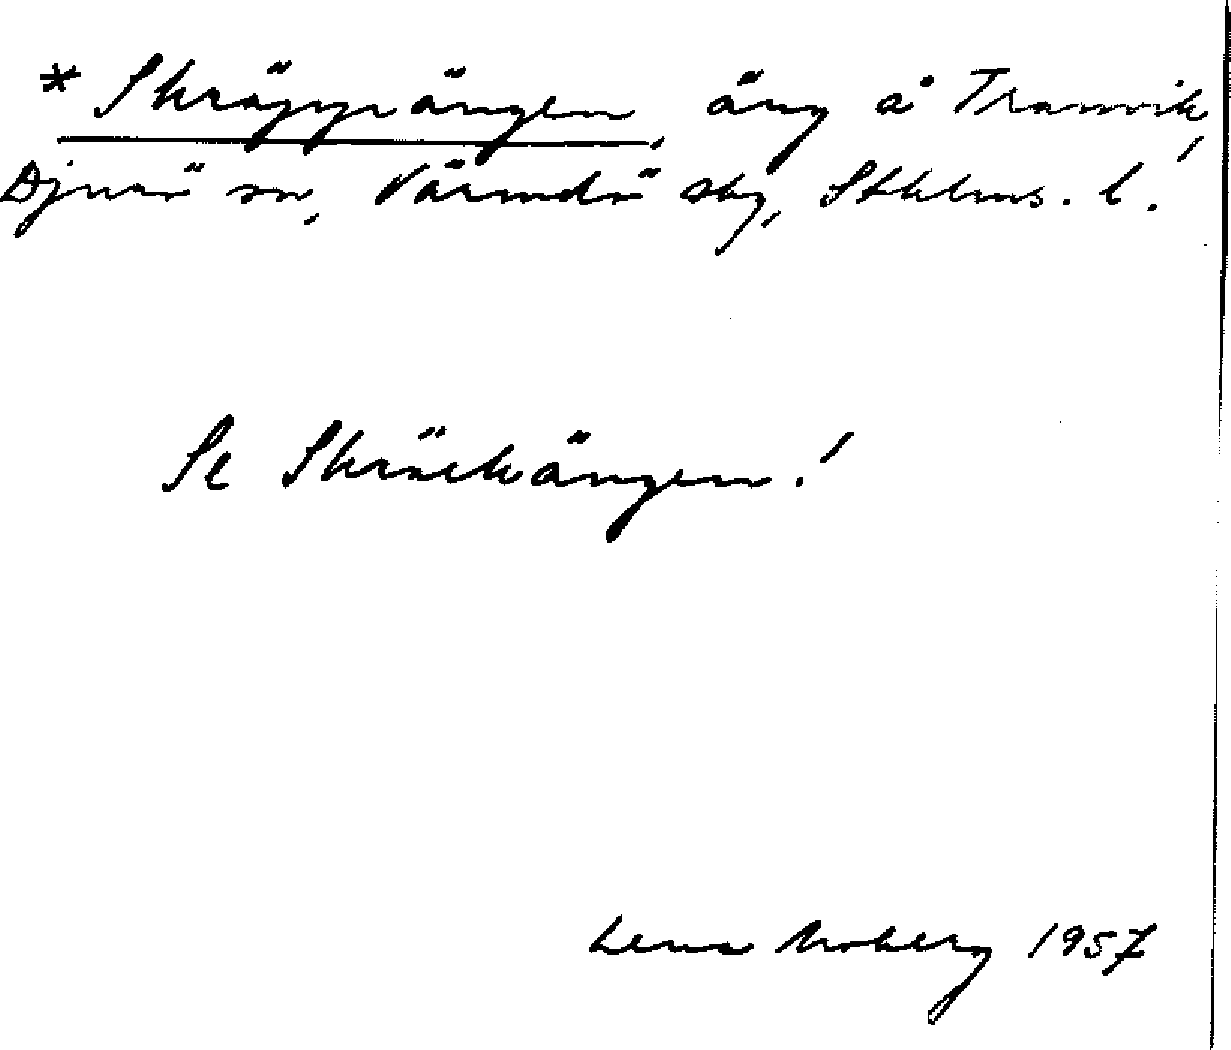 * Skräppängen, äng å Tranvik,
Djurö sn, Värmdö skg, Sthlms. l.
Se Skräckängen!
Lena Moberg 1957